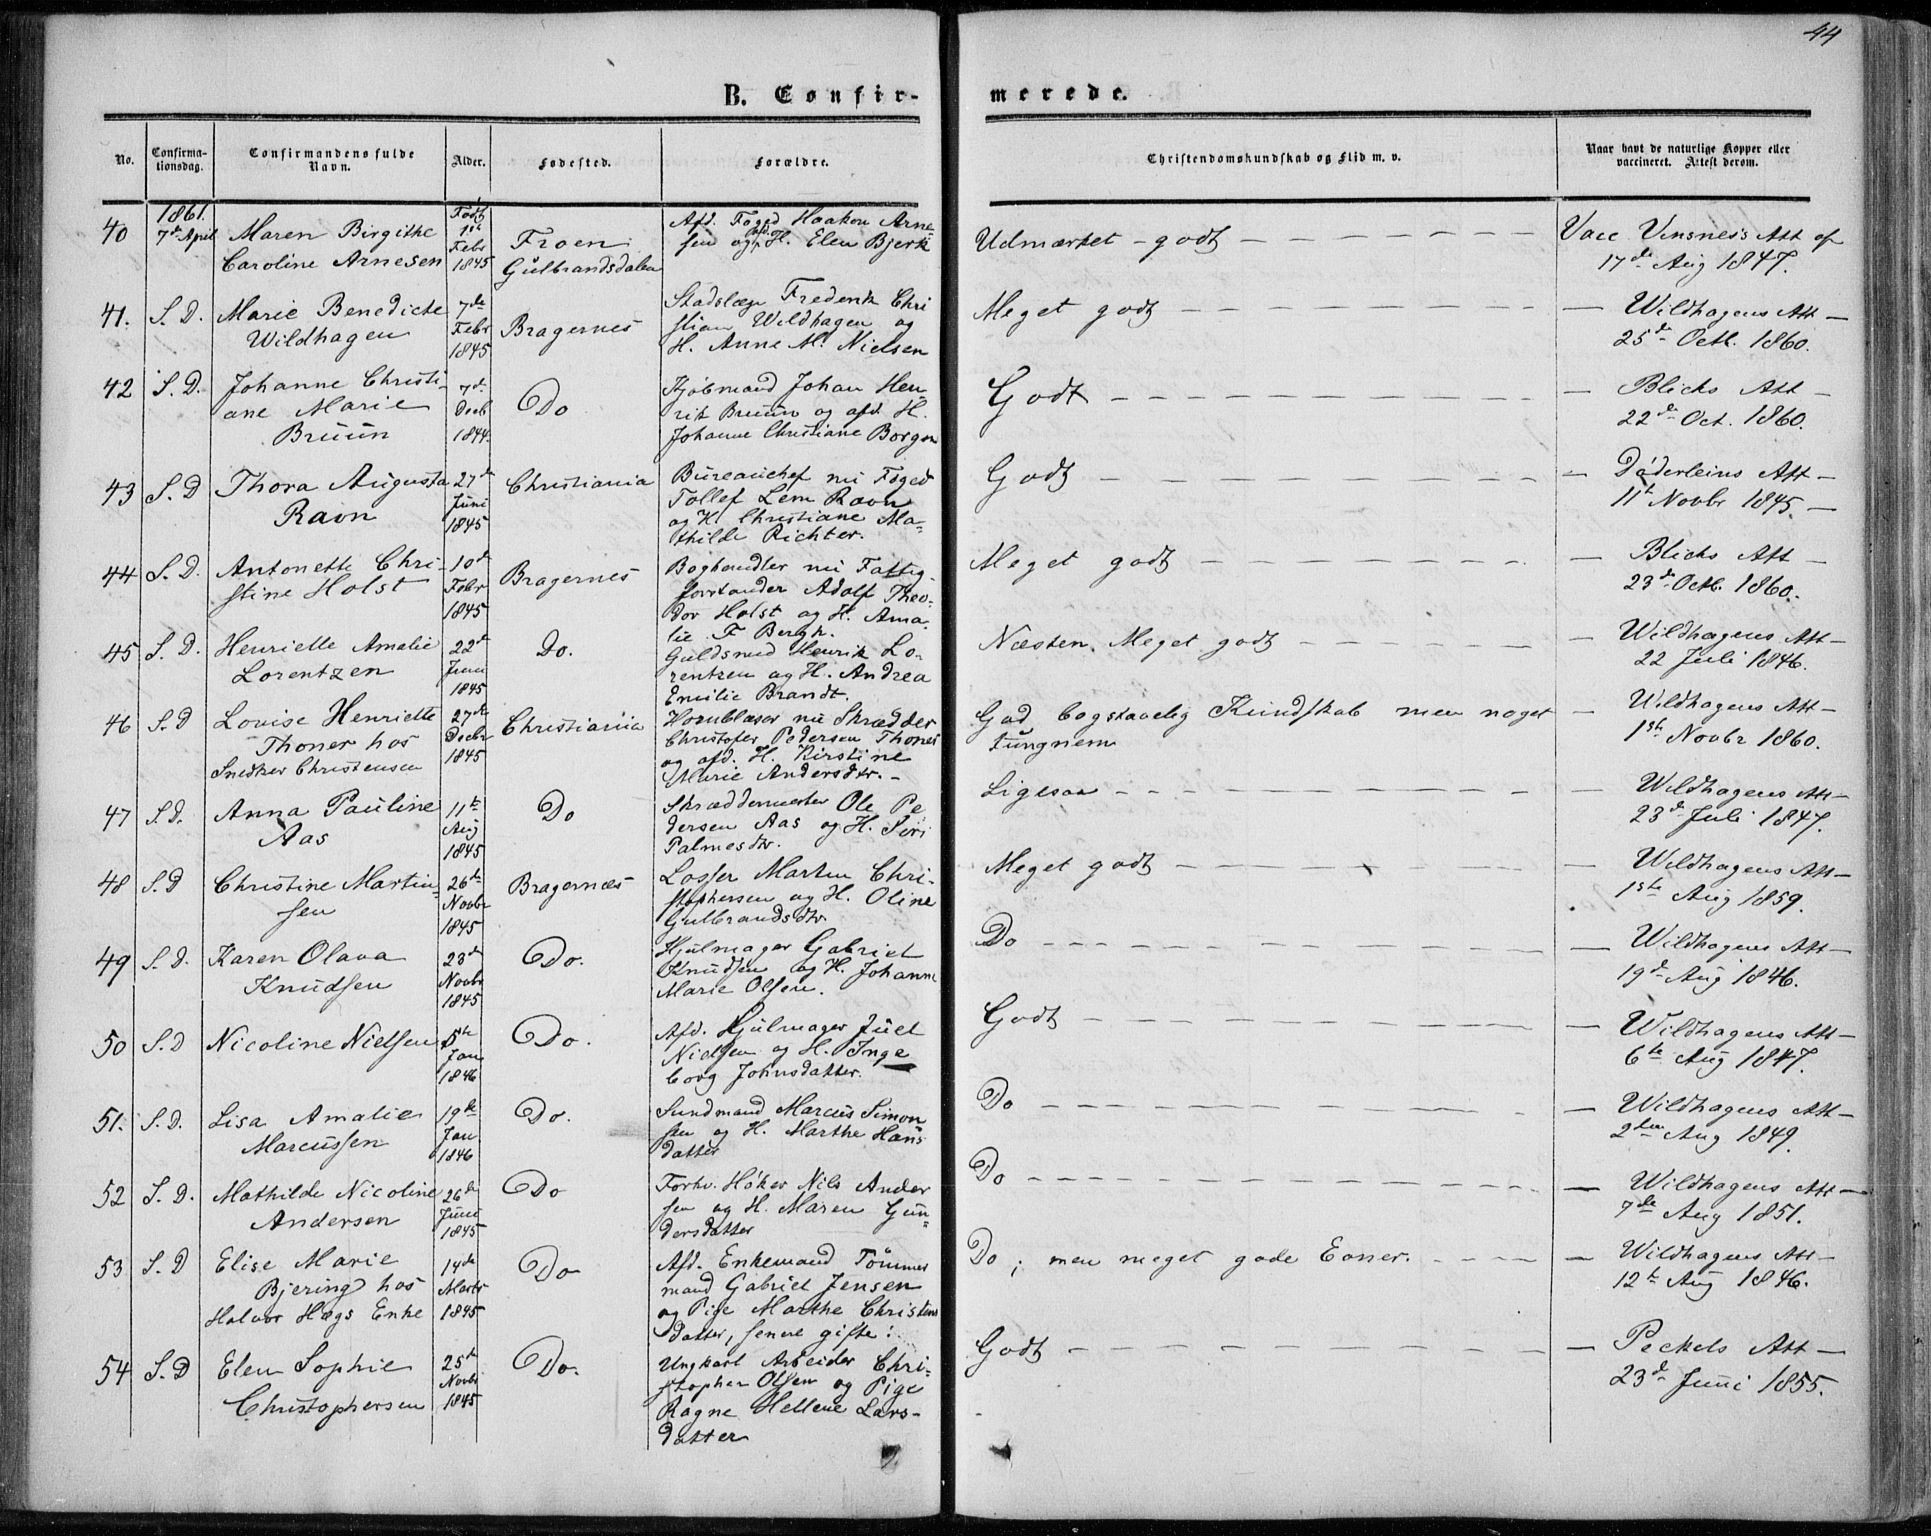 44
B. Confir-
merede.
No.
Confirma-
tionsdag.
Confirmandens fulde
Navn.
Alder.
Fødested.
Forældre.
Christendomskundskab og Flid m. v.
Naar havt de naturlige Kopper eller
vaccineret. Attest derom.
1861.
Født
40
7de April
Maren Birgithe
Caroline Arnesen
1ste
Febr
1845
Froen
Gulbrandsdalen
Afd. Foged Haakon Arne-
sen og afd. H. Elen Bjerk
Udmærket godt
Vacc Vinsnes's Att af
17de Aug 1847.
41.
S. D.
Marie Benedicte
Wildhagen
7de
Febr
1845
Bragernes
Stadslæge Frederik Chri
stian Wildhagen og
H. Anne M. Nielsen
Meget godt
Wildhagens Att
25de Octb. 1860.
42
S. D.
Johanne Christi
ane Marie
Bruun
7de
Decb
1844
Do
Kjøbmand Johan Hen
rik Bruun og afd. H.
Johanne Christiane Borgen
Godt
Blichs Att
22de Oct. 1860.
43
S. D
Thora Augusta
Ravn
27de
Juni
1845
Christiania
Bureauchef nu Foged
Tollef Lem Ravn
og H. Christiane Ma-
thilde Richter.
Godt
Døderleins Att
11te Novbr 1845.
44
S. D.
Antonette Chri-
stine Holst
10de
Febr
1845
Bragernes
Boghandler nu Fattig-
forstander Adolf Theo-
dor Holst og H. Ama-
lie F Bergh.
Meget godt
Blichs Att
23de Octb. 1860.
45
S. D.
Henriette Amalie
Lorentzen
22de
Juni
1845
Do.
Guldsmed Henrik Lo-
rentzen og H. Andrea
Emilie Brandt.
Næsten Meget godt
Wildhagens Att
22 Juli 1846.
46
S. D
Louise Henriette
Thoner hos
Snedker Christensen
27de
Decbr
1845
Christiania
Hornblæser nu Skrædder
Christofer Pedersen Thoner
og afd. H. Kirstine
Marie Andersdtr.
God bogstavelig Kundskab men noget
tungnem
Wildhagens Att
1ste Novbr 1860.
47
S. D.
Anna Pauline
Aas
11te
Aug
1845
Do
Skræddermester Ole Pe
dersen Aas og H. Siri
Palmesdtr.
Ligesaa
Wildhagens Att
23de Juli 1847.
48
S. D
Christine Martin-
sen
26de
Novbr
1845
Bragernes
Losser Martin Chri-
stophersen og H. Oline
Gulbrandsdtr
Meget godt
Wildhagens Att
1ste Aug 1859.
49
S. D.
Karen Olava
Knudsen
23de
Novbr
1845
Do.
Hjulmager Gabriel
Knudsen og H. Johanne
Marie Olsen.
Do
Wildhagens Att
19de Aug 1846.
50
S. D
Nicoline Nielsen
5te
Jan
1846
Do.
Afd. Hjulmager Juel
Nielsen og H. Inge
borg Johnsdatter.
Godt
Wildhagens Att
6te Aug 1847.
51.
S. D.
Lisa Amalie
Marcussen
19de
Jan
1846
Do.
Sundmand Marcus Simon
sen og H. Marthe Hans
datter
Do
Wildhagens Att
2den Aug 1849.
52
S. D.
Mathilde Nicoline
Andersen
26de
Juni
1845
Do
Forhv. Høker Nils Ander
sen og H. Maren Gun-
dersdatter
Do
Wildhagens Att
7de Aug 1851.
53
S. D
Elise Marie
Bjering hos
Halvor Hægs Enke
14de
Marts
1845
Do
Afd. Enkemand Tømmer
mand Gabriel Jensen
og Pige Marthe Christens
datter, senere gifte.
Do; men meget gode Evner.
Wildhagens Att
12te Aug 1846.
54
S. D
Elen Sophie
Christophersen
25de
Novbr
1845
Do.
Ungkarl Arbeider Chri-
stopher Olsen og Pige
Ragne Hellene Lars-
datter
Godt
Peckels Att
23de Juni 1855.